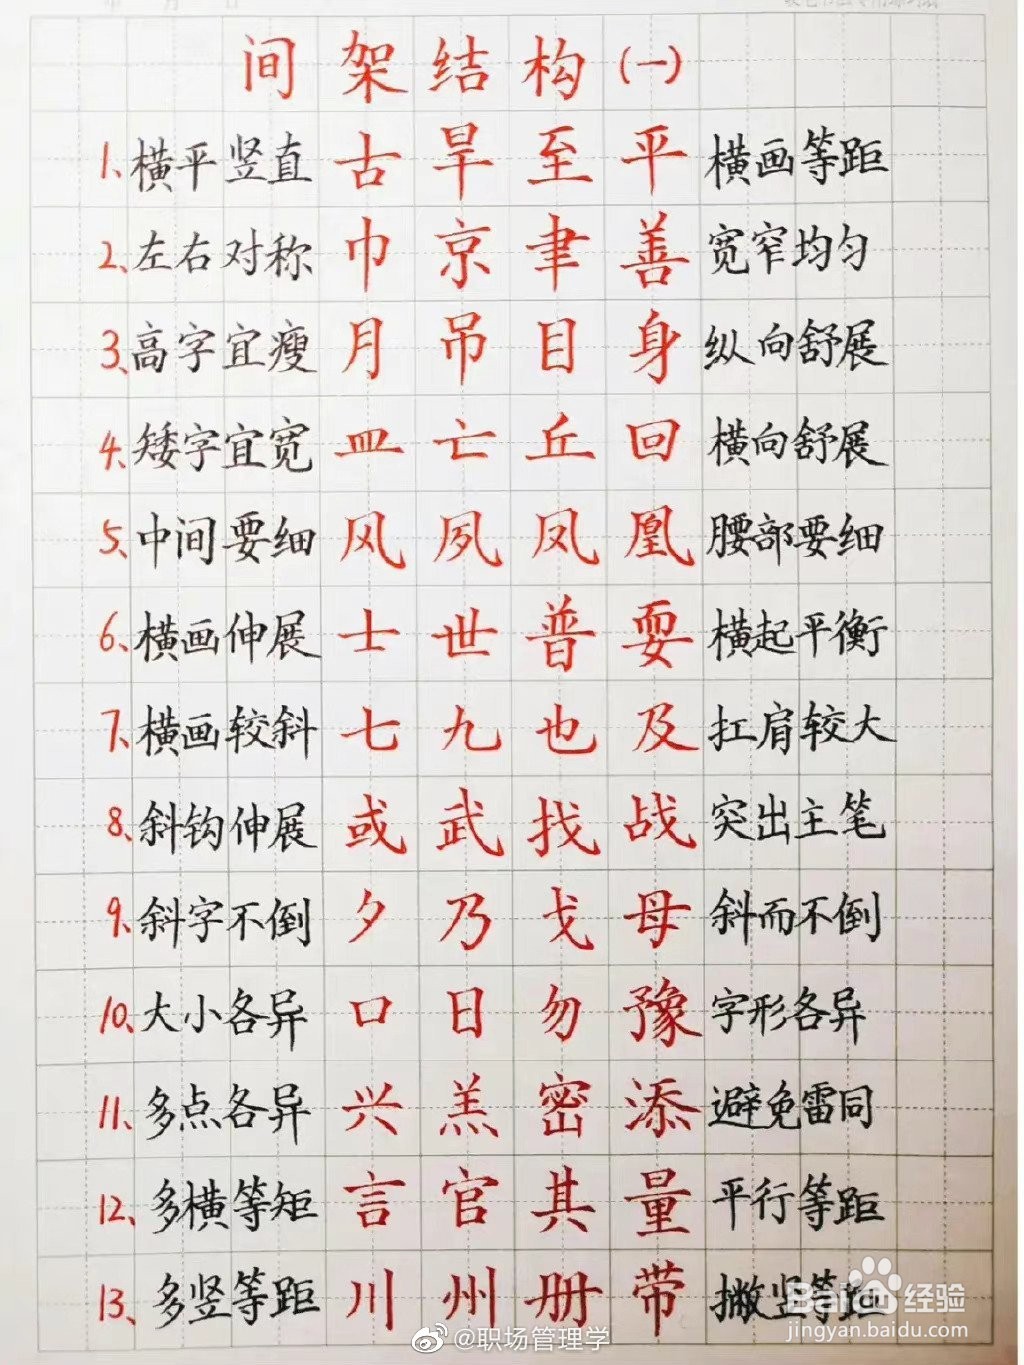 间架结构(一)
1、横平竖直 古旱至平 横画等距
2、左右对称 巾京聿善 宽窄均匀
3、高字宜瘦 月吊目身 纵向舒展
4、矮字宜宽 皿亡丘回 横向舒展
5、中间要细 风夙凤凰 腰部要细
6、横画伸展 士世普耍 横起平衡
7、横画较斜 七九也及 扛肩较大
8、斜钩伸展 或武找战 突出主笔
9、斜字不倒 夕乃戈母 斜而不倒
10、大小各异 口日勿豫 字形各异
11、多点各异 兴羔密添 避免雷同
12、多横等矩 言官其量 平行等距
13、多竖等距 川州册带 撇竖等距
@职场管理学
Baidu经验
jingyan.baidu.com